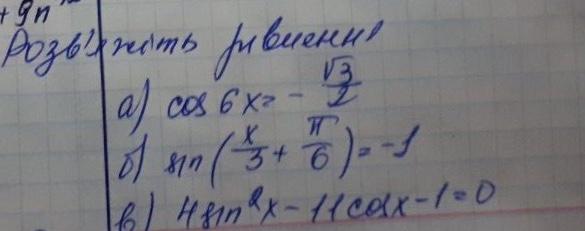 +9n
Розв'яжіть рівнення
а) cos 6x = - √3/2
б) sin(x/3 + π/6) = -1
в) 4sin²x - 11cosx - 1 = 0